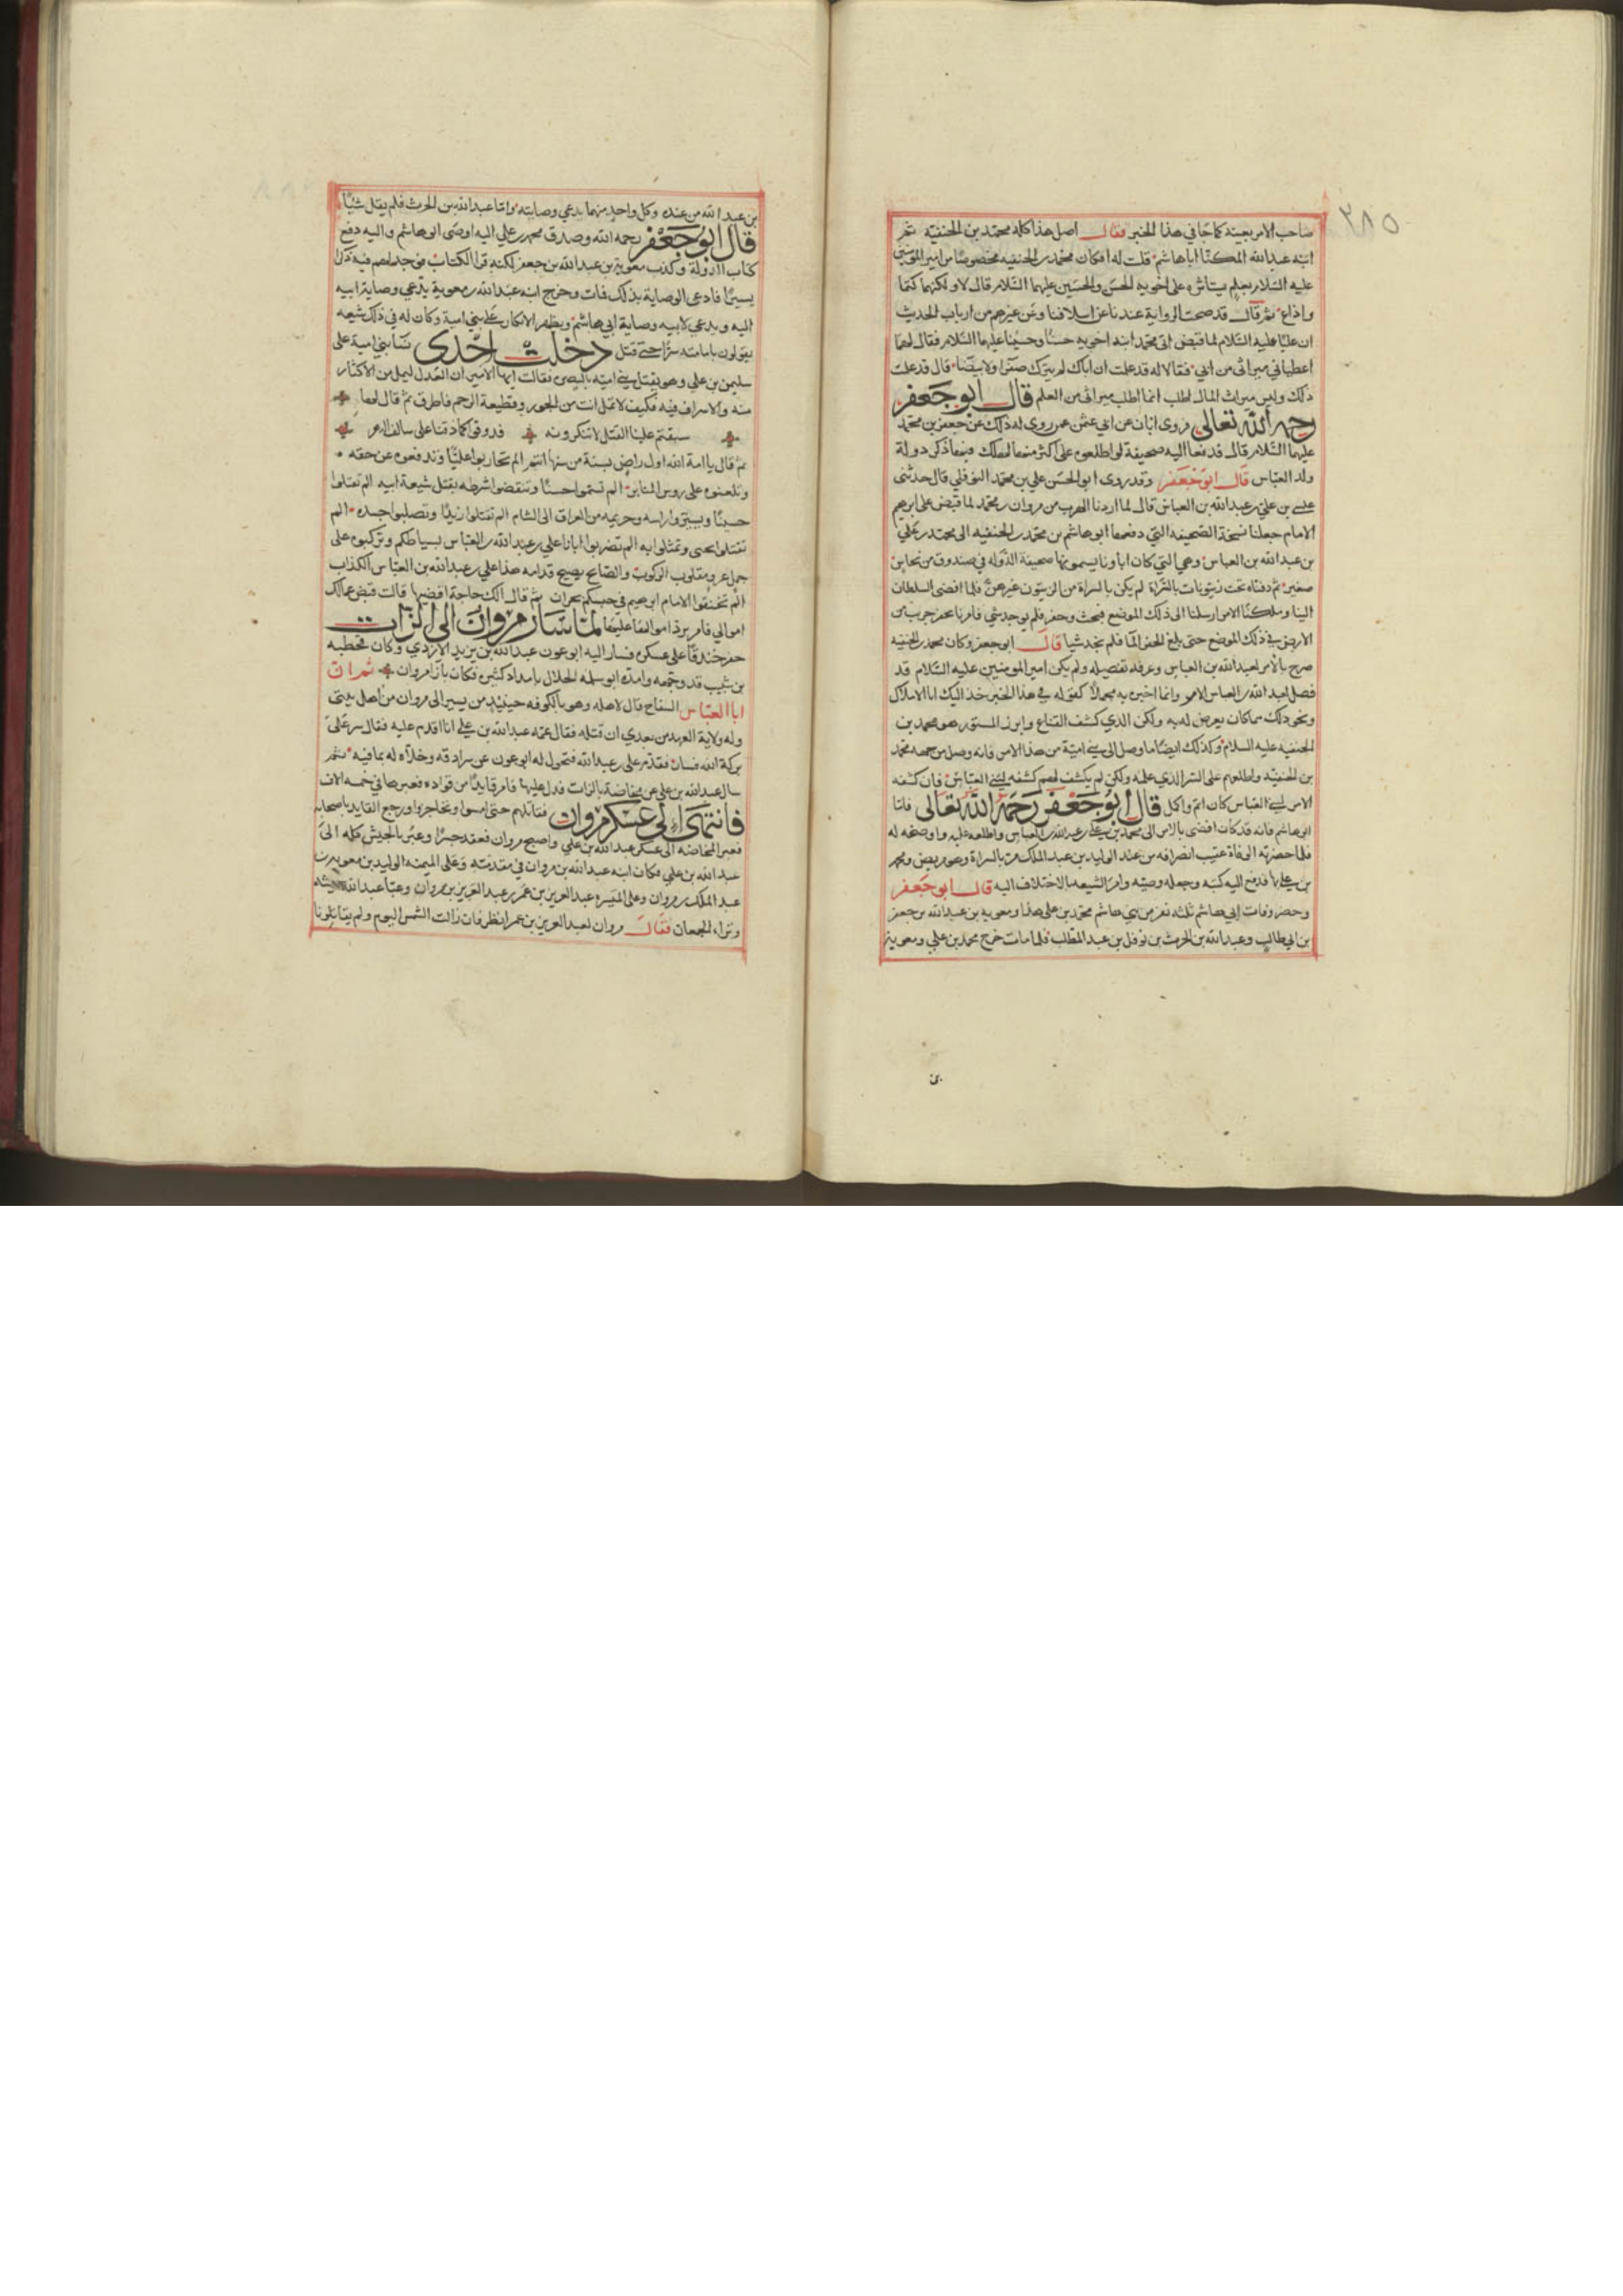 ٢٨٥
صاحب الامر بعينه كما جا في هذا الخبر فقال اصل هذا كله محمد بن الحنفية ثم
ابنه عبدالله المكنا اباهاشم قلت له افكان محمد بن الحنفيه مخصوصًا من امير المومنين
عليه السلام بعلم يستاثره على اخويه الحسن والحسين عليهما السلام قال لا ولكنهما كتما
واذاع ثم قال قد صحت الرواية عندنا عن اسلافنا وعن غيرهم من ارباب الحديث
ان عليًا عليه السلام لما قبض اتى محمد ابنه اخويه حسنًا وحسينًا عليهما السلام فقال لهما
اعطياني ميراثي من ابي فقالا له قد علمت ان اباك لم يترك صفرا ولا بيضا قال قد علمت
ذلك وليس ميراث المال اطلب انما اطلب ميراثي من العلم قال ابو جعفر
رحمه الله تعالى فروى ابان عن ابي عثمن عمن روى له ذلك عن جعفر بن محمد
عليهما السلام قال قد دفعا اليه صحيفة لو اطلعوه على اكثر منها لهلك فيها ذكر دولة
ولد العباس قال ابو جعفر وقد روى ابو الحسن علي بن محمد النوفلي قال حدثني
عيسى بن علي بن عبدالله بن العباس قال لما اردنا الهرب من مروان بن محمد لما قبض على ابرهيم
الامام جعلنا نسخة الصحيفه التي دفعها ابو هاشم بن محمد بن الحنفيه الى محمد بن علي
بن عبدالله بن العباس وهي التي كان اباونا يسمونها صحيفة الدوله في صندوق من نحاس
صغير ثم دفناه تحت زيتونات بالشراة لم يكن بالسراة من الزيتون غيرهن فلما افضى السلطان
الينا وملكنا الامر ارسلنا الى ذلك الموضع فبحث وحفر فلم يوجد شي فامرنا بحفر جريب من
الارض في ذلك الموضع حتى بلغ الحفر الما فلم نجد شيا قال ابو جعفر وكان محمد بن الحنفيه
صرح بالامر لعبد الله بن العباس وعرفه تفصيله ولم يكن امير المومنين عليه السلام قد
فصل لعبد الله بن العباس الامر وانما اخبره به مجملًا كقوله في هذا الخبر خذ اليك ابا الاملاك
ونحو ذلك مما كان يعرض له به ولكن الذي كشف القناع وابرز المستور هو محمد بن
الحنفيه عليه السلام وكذلك ايضًا ما وصل الى بني امية من هذا الامر فانه وصل من جهه محمد
بن الحنفيه واطلعهم على السر الذي علمه ولكن لم يكشف لهم كشفه لبني العباس فان كشفه
الامر لبني العباس كان اتم واكمل قال ابو جعفر رحمه الله تعالى فاما
ابوهاشم فانه قد كان افضى بالامر الى محمد بن علي بن عبدالله بن العباس واطلعه عليه واوضحه له
فلما حضرته الوفاة عقيب انصرافه من عند الوليد بن عبد الملك مر بالسراة وهو مريض ومحمد
بن علي بها فدفع اليه كتبه وجعله وصيه وامر الشيعه بالاختلاف اليه قال ابو جعفر
وحضر وفات ابي هاشم ثلثه نفر من بني هاشم محمد بن علي هذا ومعويه بن عبدالله بن جعفر
بن ابي طالب وعبدالله بن الحرث بن نوفل بن عبد المطلب فلما مات خرج محمد بن علي ومعوية
بن عبد الله من عنده وكل واحد منهما يدعي وصايته واما عبدالله بن الحرث فلم يقل شيًا
قال ابو جعفر رحمه الله وصدق محمد بن علي اليه اوصى ابو هاشم واليه دفع
كتاب الدولة وكذب معوية بن عبدالله بن جعفر لكنه قرا الكتاب فوجد لهم فيه ذكرا
يسيرًا فادعى الوصاية بذلك فمات وخرج ابنه عبدالله بن معوية يدعي وصاية ابيه
اليه ويدعي لابيه وصاية ابي هاشم ويظهر الانكار على بني امية وكان له في ذلك شيعه
يقولون بامامته سرًا حتى قتل دخلت احدى نسا بني امية على
سليمن بن علي وهو يقتل بني اميه بالبصره فقالت ايها الامير ان العدل ليمل من الاكثار
منه والاسراف فيه فكيف لا تمل انت من الجور وقطيعة الرحم فاطرق ثم قال لها
سبقتم علينا القتل لا تنكرونه فدوقوا كما دقنا على سالف الدهر
ثم قال يا امة الله اول راض بسنة من سنها انتم الم تحاربوا عليًا وتدفعوه عن حقه
وتلعنوه على روس المنابر الم تسموا حسنًا وتنقضوا شرطه بقتل شيعة ابيه الم تقتلوا
حسينًا وتسيروا راسه وحريمه من العراق الى الشام الم تقتلوا زيدًا وتصلبوا جسده الم
تقتلوا يحيى وتمثلوا به الم تضربوا ابانا علي بن عبدالله بن العباس بسياطكم وتركبوه على
جمل عرو مقلوب الركوب والصايح يصيح قدامه هذا علي بن عبدالله بن العباس الكذاب
الم تخنقوا الامام ابرهيم في حبسكم بحران ثم قال الك حاجة اقضيها قالت قبض عمالك
اموالي فامر برد اموالها عليها لما سار مروان الى الزاب
حفر خندقًا على عسكره فسار اليه ابو عون عبدالله بن يزيد الازدي وكان قحطبه
بن شبيب قد وجهه وامده ابو سلمه الخلال بامداد كثيره فكان بازا مروان ثم ان
ابا العباس السفاح قال لاهله وهو بالكوفه حينيذ من يسير الى مروان من اهل بيتي
وله ولاية العهد من بعدي ان قتله فقال عمه عبدالله بن علي انا اقدم عليه فقال سر على
بركة الله فسار فقدم علي بن عبدالله فتحول له ابوعون عن سرادقه وخلاه له بما فيه ثم
سال عبدالله بن علي عن مخاضة بالزاب فدل عليها فامر قايدًا من قواده فعبرها في خمسه الاف
فانتهى الى عسكر مروان فقاتلهم حتى امسوا وتحاجزوا ورجع القايد باصحابه
فعبر المخاضه الى عسكر عبدالله بن علي واصبح مروان فعقد جسرًا وعبر بالجيش كله الى
عبدالله بن علي فكان ابنه عبدالله بن مروان في مقدمته وعلى الميمنه الوليد بن معوية بن
عبد الملك بن مروان وعلى الميسره عبد العزيز بن عمر بن عبد العزيز بن مروان وعبا عبدالله جيشه
وتراء الجمعان فقال مروان لعبد العزيز بن عمر انظر فان زالت الشمس اليوم ولم يقاتلونا